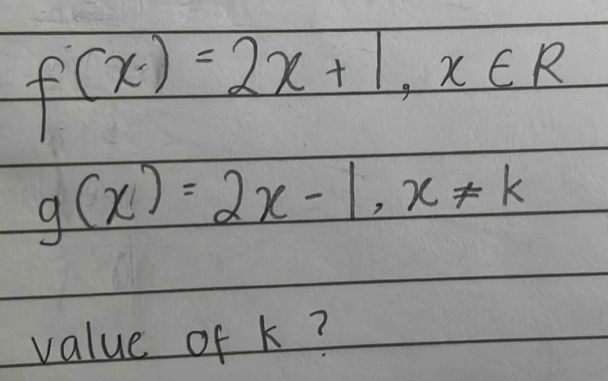 f(x) = 2x + 1, x ∈ R
g(x) = 2x - 1, x ≠ k
value of k ?